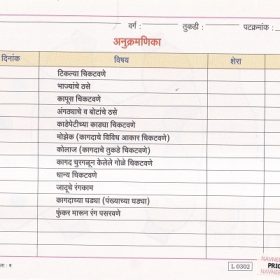 वर्ग : तुकडी : पटक्रमांक :
अनुक्रमणिका
दिनांक विषय शेरा
टिकल्या चिकटवणे
भाज्यांचे ठसे
कापूस चिकटवणे
अंगठ्याचे व बोटांचे ठसे
काडेपेटीच्या काड्या चिकटवणे
मोझेक (कागदाचे विविध आकार चिकटवणे)
कोलाज (कागदाचे तुकडे चिकटवणे)
कागद चुरगळून केलेले गोळे चिकटवणे
धान्य चिकटवणे
जादूचे रंगकाम
कागदाच्या घड्या (पंख्याच्या घड्या)
फुंकर मारून रंग पसरवणे
L 0302